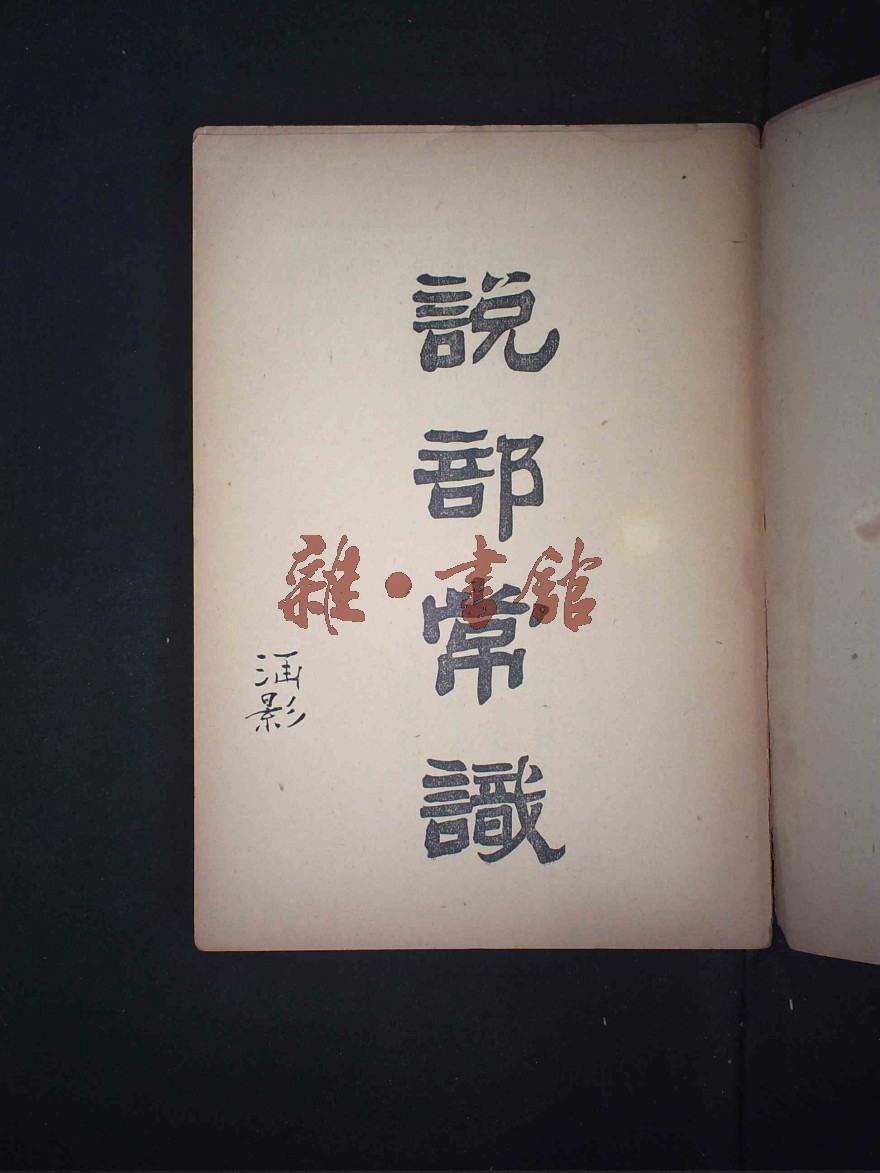 說部常識
涵影
雜·書館